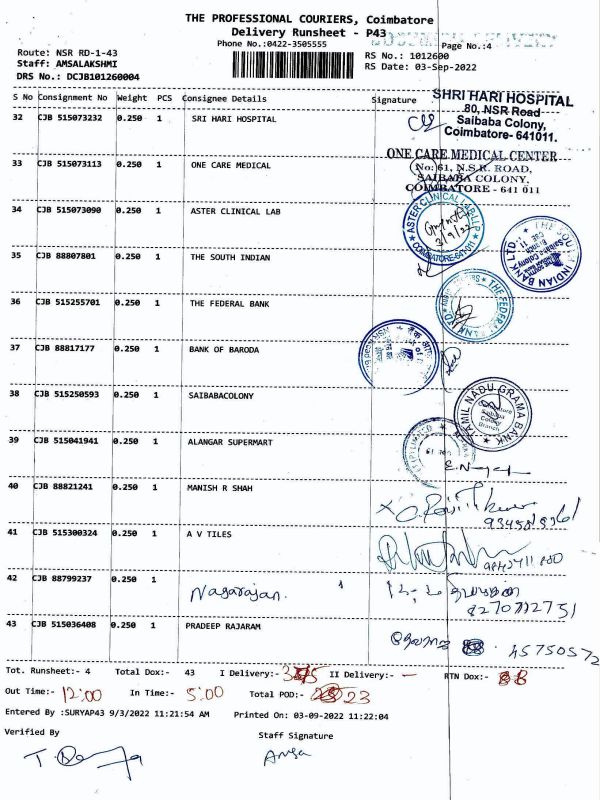 THE PROFESSIONAL COURIERS, Coimbatore
Delivery Runsheet - P43
Phone No.:0422-3505555
Page No.:4
Route: NSR RD-1-43
Staff: AMSALAKSHMI
DRS No.: DCJB101260004
RS No.: 1012600
RS Date: 03-Sep-2022
S No Consignment No Weight PCS Consignee Details Signature
SHRI HARI HOSPITAL
80, NSR Road
Saibaba Colony,
Coimbatore- 641011.
32 CJB 515073232 0.250 1 SRI HARI HOSPITAL
ONE CARE MEDICAL CENTER
No: 61, N.S.R. ROAD,
SAIBABA COLONY,
COIMBATORE - 641 011
33 CJB 515073113 0.250 1 ONE CARE MEDICAL
34 CJB 515073090 0.250 1 ASTER CLINICAL LAB
ASTER CLINICAL LAB LLP
COIMBATORE-641 011
3/9/22
35 CJB 88807801 0.250 1 THE SOUTH INDIAN
THE SOUTH INDIAN BANK LTD.
36 CJB 515255701 0.250 1 THE FEDERAL BANK
THE FEDERAL BANK
37 CJB 88817177 0.250 1 BANK OF BARODA
38 CJB 515250593 0.250 1 SAIBABACOLONY
TAMIL NADU GRAMA BANK
Coimbatore
Saibaba
Colony
Branch
39 CJB 515041941 0.250 1 ALANGAR SUPERMART
40 CJB 88821241 0.250 1 MANISH R SHAH
41 CJB 515300324 0.250 1 A V TILES
42 CJB 88799237 0.250 1
Nagarajan.
8270772751
43 CJB 515036408 0.250 1 PRADEEP RAJARAM
45750572
Tot. Runsheet:- 4 Total Dox:- 43 I Delivery:- II Delivery:- — RTN Dox:-
Out Time:- 12:00 In Time:- 5:00 Total POD:- 23
Entered By :SURYAP43 9/3/2022 11:21:54 AM Printed On: 03-09-2022 11:22:04
Verified By Staff Signature
Amsa